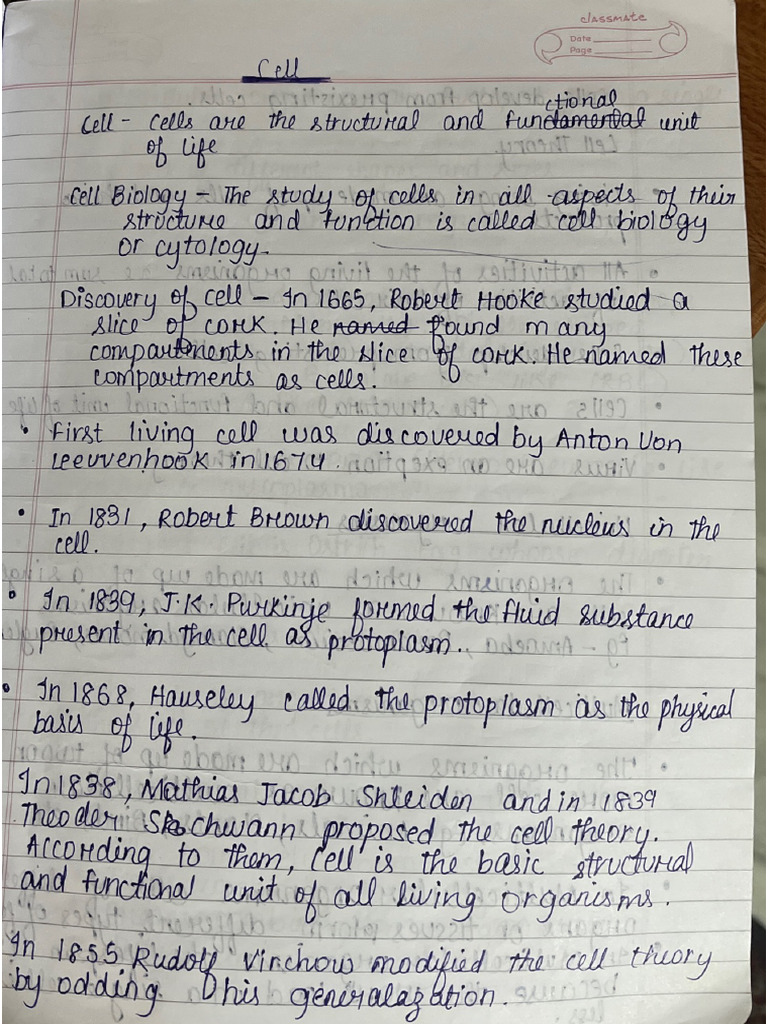 classmate
Date
Page
Cell
ctional
Cell - Cells are the structural and fundamental unit
of life
Cell Biology - The study of cells in all aspects of their
structure and function is called cell biology
or cytology.
Discovery of cell - In 1665, Robert Hooke studied a
slice of cork. He named found many
compartments in the slice of cork. He named these
compartments as cells.
• First living cell was discovered by Anton Von
Leeuvenhook in 1674.
• In 1831, Robert Brown discovered the nucleus in the
cell.
• In 1839, J.K. Purkinje formed the fluid substance
present in the cell as protoplasm.
• In 1868, Hauseley called the protoplasm as the physical
basis of life.
In 1838, Mathias Jacob Shleiden and in 1839
Theoder Schwann proposed the cell theory.
According to them, Cell is the basic structural
and functional unit of all living organisms.
In 1855 Rudolf Virchow modified the cell theory
by odding his generalazation.